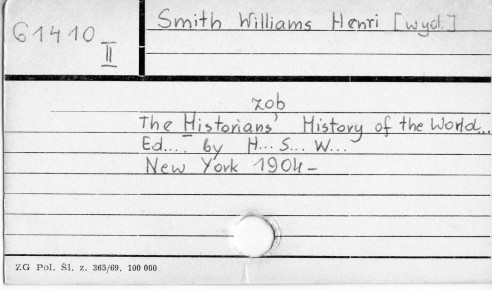 61410
II
Smith Williams Henri [wyd.]
zob
The Historians' History of the World...
Ed.... by H... S... W...
New York 1904-
ZG Pol. Śl. z. 365/69. 100 000